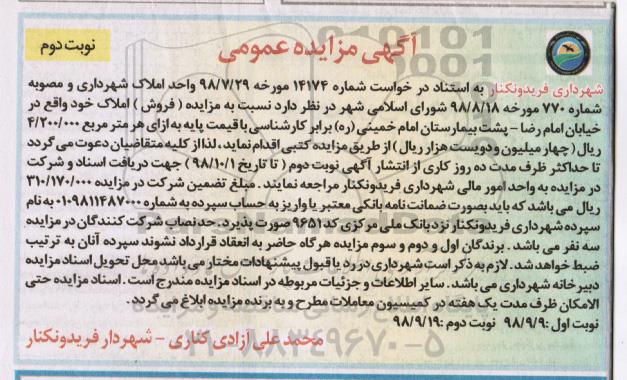 آگهی مزایده عمومی
نوبت دوم
شهرداری فریدونکنار به استناد در خواست شماره ۱۴۱۷۴ مورخه ۹۸/۷/۲۹ واحد املاک شهرداری و مصوبه
شماره ۷۷۰ مورخه ۹۸/۸/۱۸ شورای اسلامی شهر در نظر دارد نسبت به مزایده ( فروش ) املاک خود واقع در
خیابان امام رضا - پشت بیمارستان امام خمینی (ره) برابر کارشناسی با قیمت پایه به ازای هر متر مربع ۴/۲۰۰/۰۰۰
ریال ( چهار میلیون و دویست هزار ریال ) از طریق مزایده کتبی اقدام نماید ، لذا از کلیه متقاضیان دعوت می گردد
تا حداکثر ظرف مدت ده روز کاری از انتشار آگهی نوبت دوم ( تا تاریخ ۹۸/۱۰/۱ ) جهت دریافت اسناد و شرکت
در مزایده به واحد امور مالی شهرداری فریدونکنار مراجعه نمایند . مبلغ تضمین شرکت در مزایده ۳۱۰/۱۷۰/۰۰۰
ریال می باشد که باید بصورت ضمانت نامه بانکی معتبر یا واریز به حساب سپرده به شماره ۰۱۰۹۸۱۱۴۸۷۰۰۰ به نام
سپرده شهرداری فریدونکنار نزد بانک ملی مرکزی کد ۹۶۵۱ صورت پذیرد . حد نصاب شرکت کنندگان در مزایده
سه نفر می باشد . برندگان اول و دوم و سوم مزایده هر گاه حاضر به انعقاد قرارداد نشوند سپرده آنان به ترتیب
ضبط خواهد شد . لازم به ذکر است شهرداری در رد یا قبول پیشنهادات مختار می باشد محل تحویل اسناد مزایده
دبیرخانه شهرداری می باشد . سایر اطلاعات و جزئیات مربوطه در اسناد مزایده مندرج است . اسناد مزایده حتی
الامکان ظرف مدت یک هفته در کمیسیون معاملات مطرح و به برنده مزایده ابلاغ می گردد .
نوبت اول : ۹۸/۹/۹ نوبت دوم : ۹۸/۹/۱۹
محمد علی آزادی کناری - شهردار فریدونکنار
۰۲۱-۸۸۳۴۹۶۷۰-۵